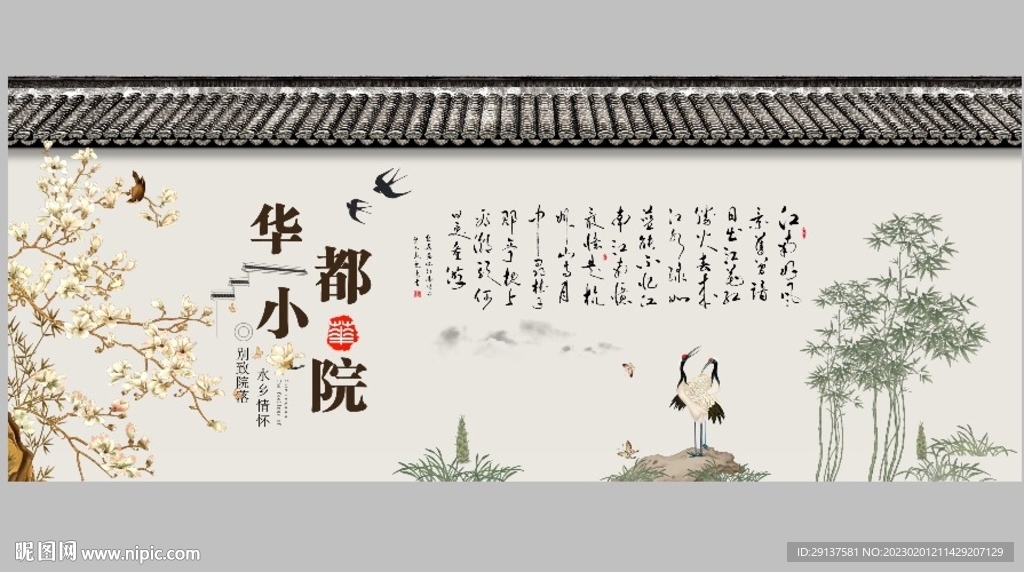 华都小院
華
别致院落
水乡情怀
江南好風
景舊曾諳
日出江花紅
勝火春來
江水綠如
藍能不憶江
南江南憶
最憶是杭
州山寺月
中尋桂子
郡亭枕上
看潮頭何
日更重游
昵图网 www.nipic.com
ID:29137581 NO:20230201211429207129